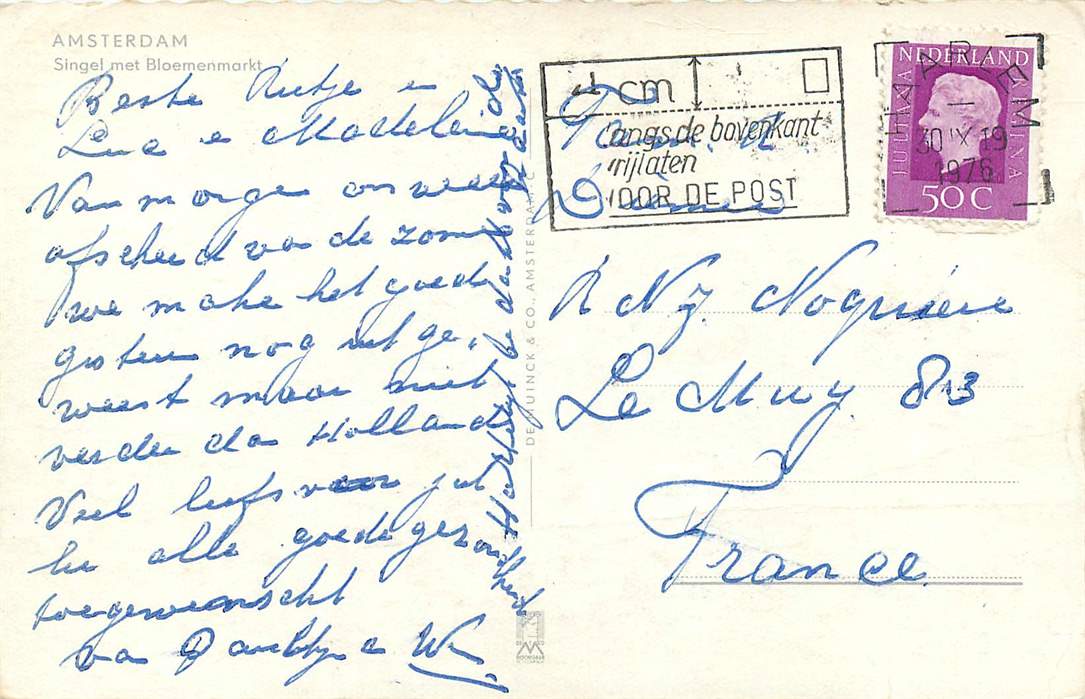 AMSTERDAM
Singel met Bloemenmarkt
Beste Rutje en
Luc e Madeleine
Van morgen
afscheid van de zomer
we make het goed
gisteren nog uit ge-
weest maar niet
verder dan Holland
Veel liefs voor jul
lie alle goede gezondheid
toegewenscht
van
Hartelijk bedankt voor de
DE MUINCK & CO., AMSTERDAM-C
cm
langs de bovenkant
vrijlaten
VOOR DE POST
HAARLEM
30 IX 19
1976
NEDERLAND
JULIANA REGINA
50 C
Fam.
R N 7. Nogriere
Le Muy 83
France.